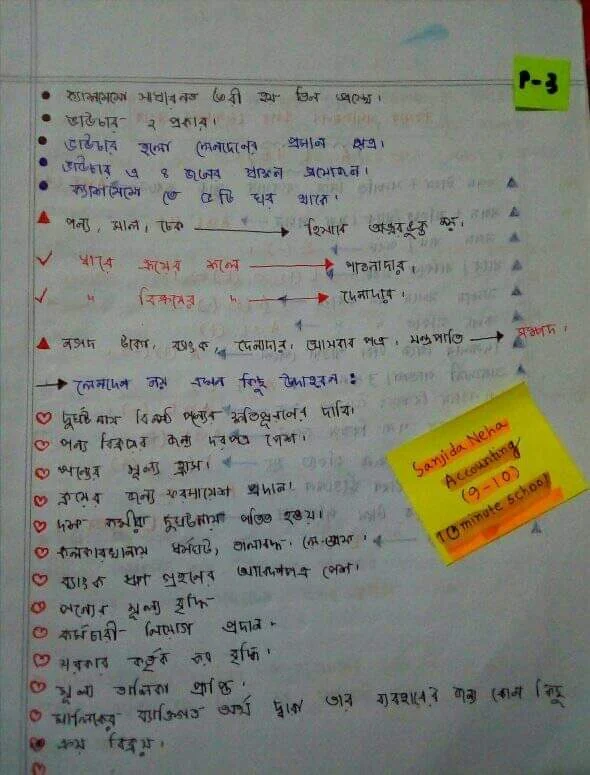 P-3
ক্যাশমেমো সাধারনত তৈরী হয় তিন প্রস্থে।
ভাউচার ২ প্রকার।
ভাউচার হলো লেনদেনের প্রমান পত্র।
ভাউচার এ ৪ জনের স্বাক্ষর প্রয়োজন।
ক্যাশমেমো তে ৫ টি ঘর থাকে।
পন্য, মাল, চেক → হিসাবে অন্তর্ভুক্ত হয়।
ধারে ক্রয়ের ফলে → পাওনাদার।
" বিক্রয়ের " → দেনাদার।
নগদ টাকা, ব্যাংক, দেনাদার, আসবাব পত্র, যন্ত্রপাতি → সম্পদ।
→ লেনদেন নয় এমন কিছু উদাহরন :
দুর্ঘটনায় বিনষ্ট পন্যের ক্ষতিপূরনের দাবি।
পন্য বিক্রয়ের জন্য দরপত্র পেশ।
পন্যের মূল্য হ্রাস।
ক্রয়ের জন্য ফরমায়েশ প্রদান।
দক্ষ কর্মীরা দুর্ঘটনায় পতিত হওয়া।
কলকারখানায় ধর্মঘট,
ব্যাংক ঋণ গ্রহনের আবেদনপত্র পেশ।
পন্যের মূল্য বৃদ্ধি
কর্মচারী নিয়োগ প্রদান।
সরকার কর্তৃক কর বৃদ্ধি।
মূল্য তালিকা প্রাপ্তি।
মালিকের ব্যক্তিগত অর্থ দ্বারা তার ব্যবহারের জন্য কোন কিছু
ক্রয় বিক্রয়।
Sanjida Neha
Accounting
(9-10)
10 minute school